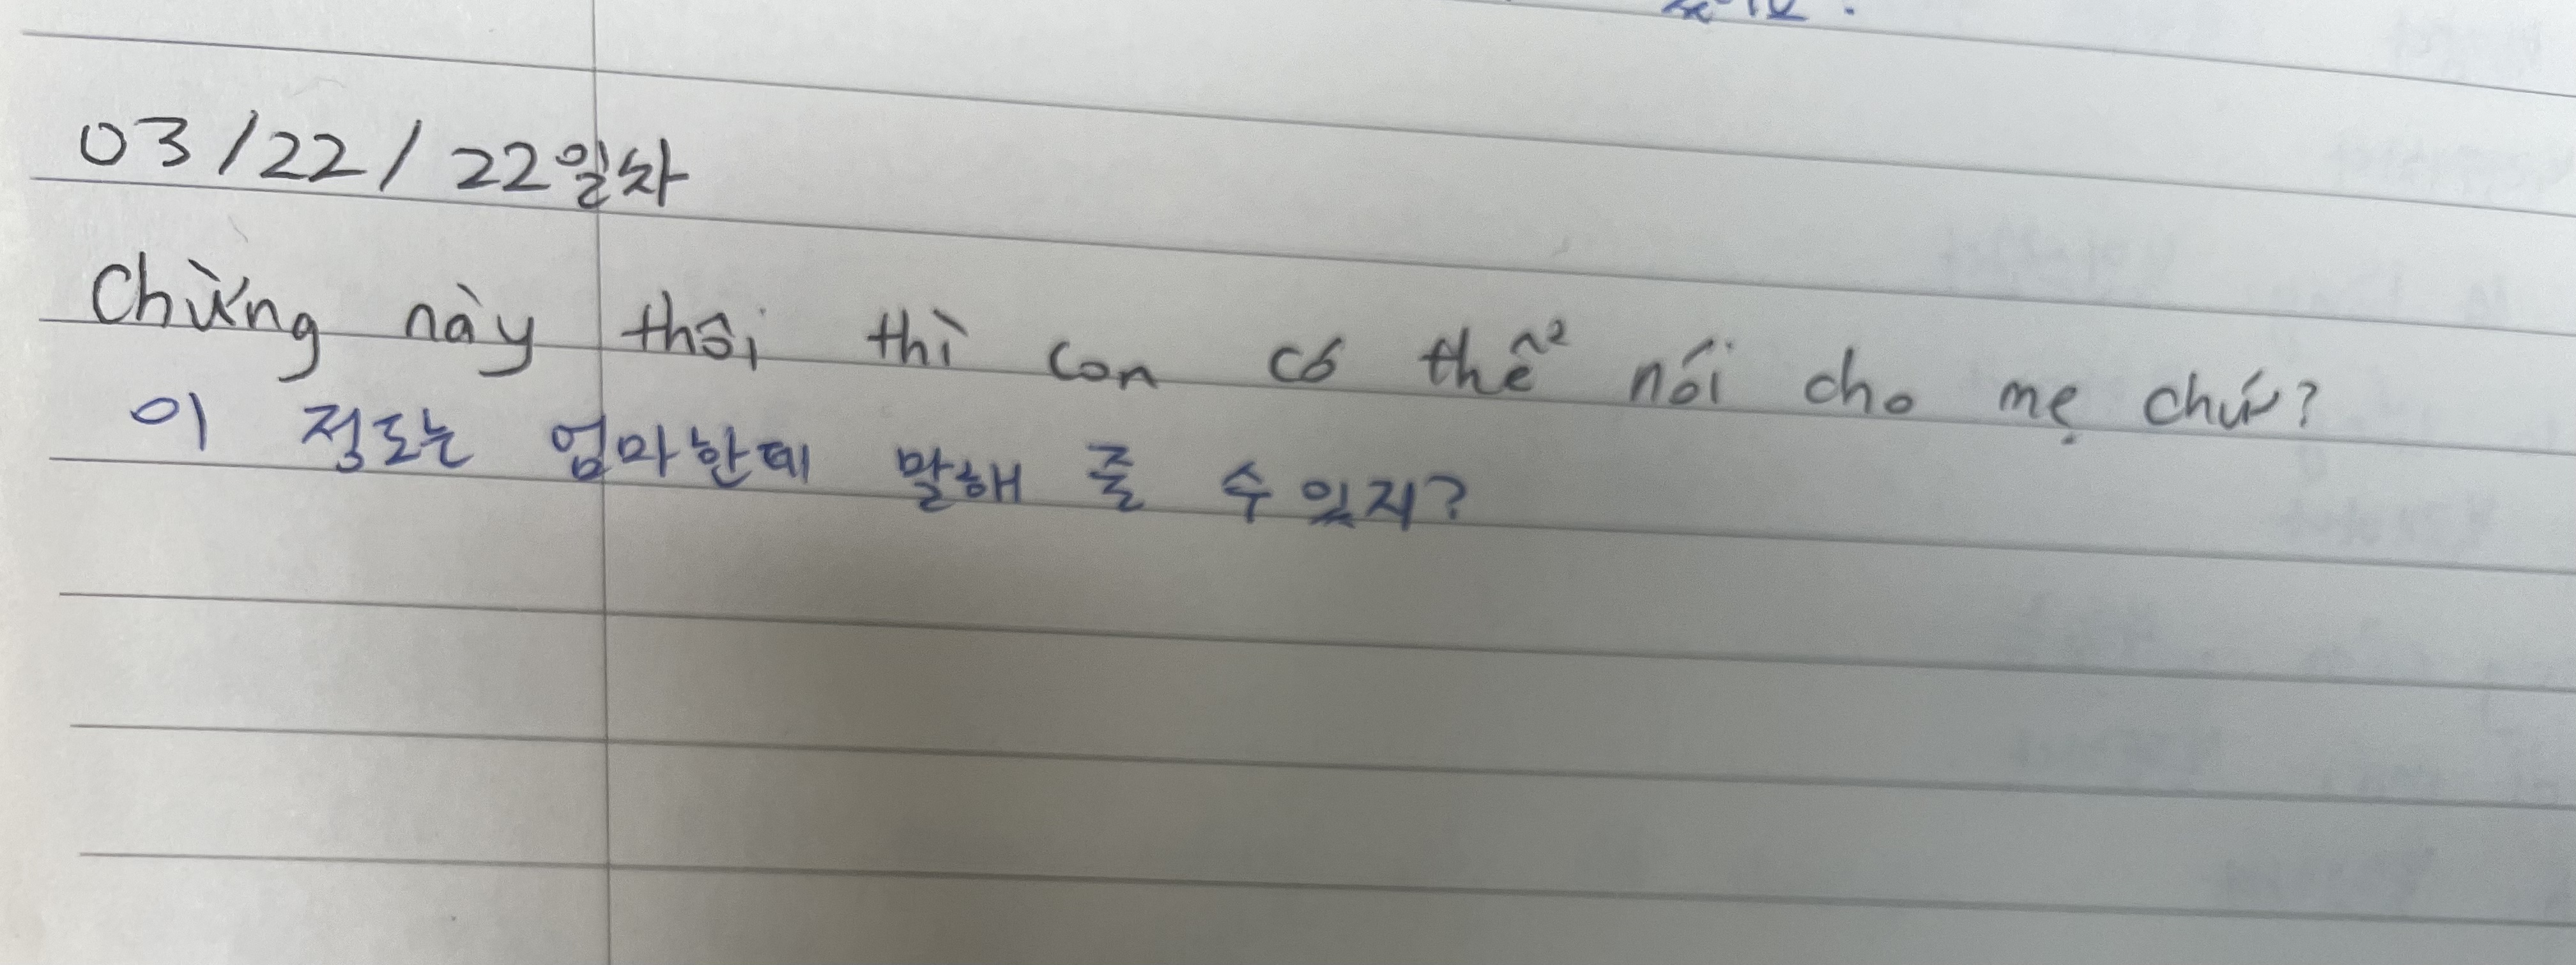 03/22/22일차
Chừng này thôi thì con có thể nói cho mẹ chứ?
이 정도는 엄마한테 말해 줄 수 있지?